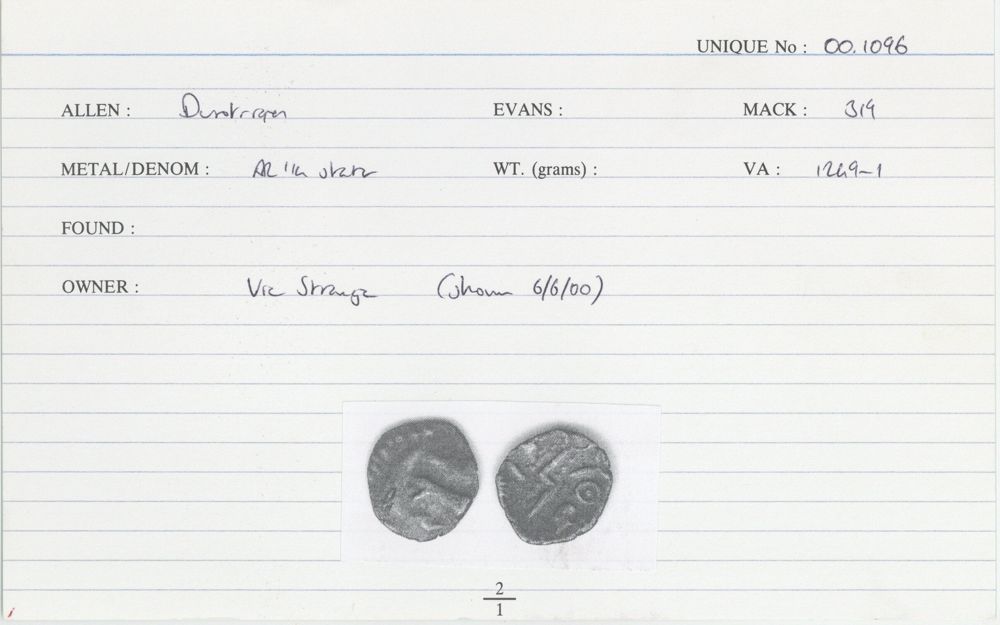 UNIQUE No : 00.1096
ALLEN : Durotrigan EVANS : MACK : 319
METAL/DENOM : AR 1/4 stater WT. (grams) : VA : 1249-1
FOUND :
OWNER : Vic Strange (shown 6/6/00)
2
1